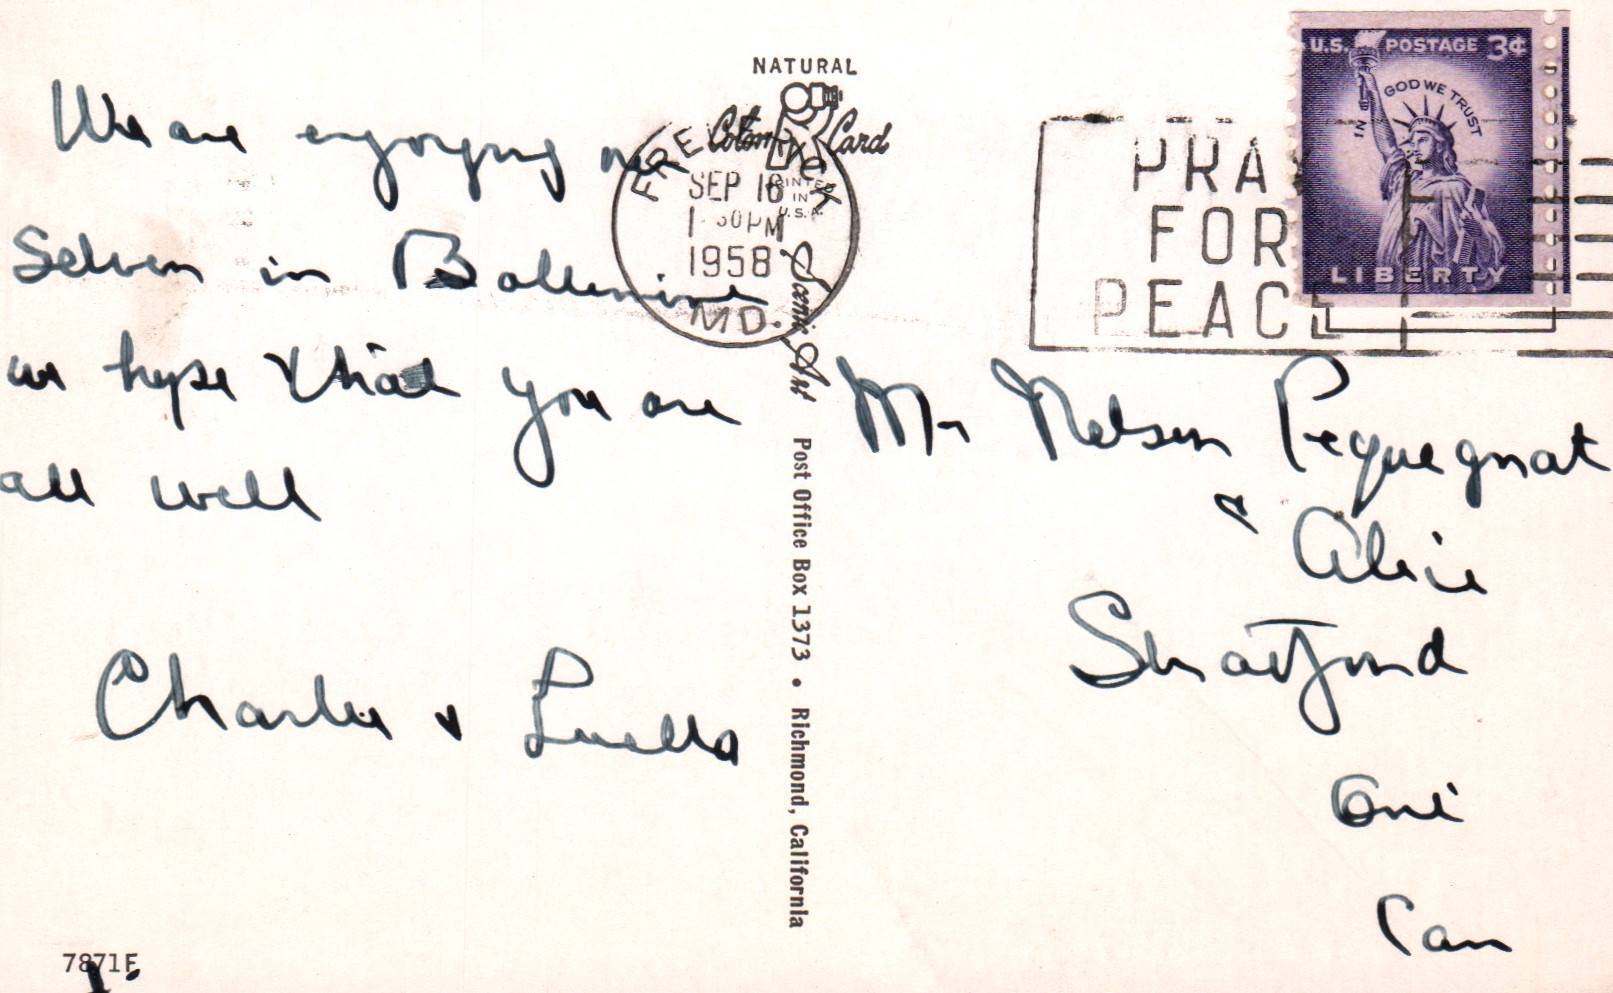 We are enjoying our
selves in Baltimore
we hope that you are
all well
Charlie & Luella
7871F
NATURAL
Color Card
PRINTED
IN
U.S.A.
Scenic Art
Post Office Box 1373 • Richmond, California
FREDERICK
SEP 16
1-30PM
1958
MD.
PRAY
FOR
PEACE
U.S. POSTAGE 3¢
IN GOD WE TRUST
LIBERTY
Mr Nelson Pequegnat
& Alice
Stratford
Ont
Can